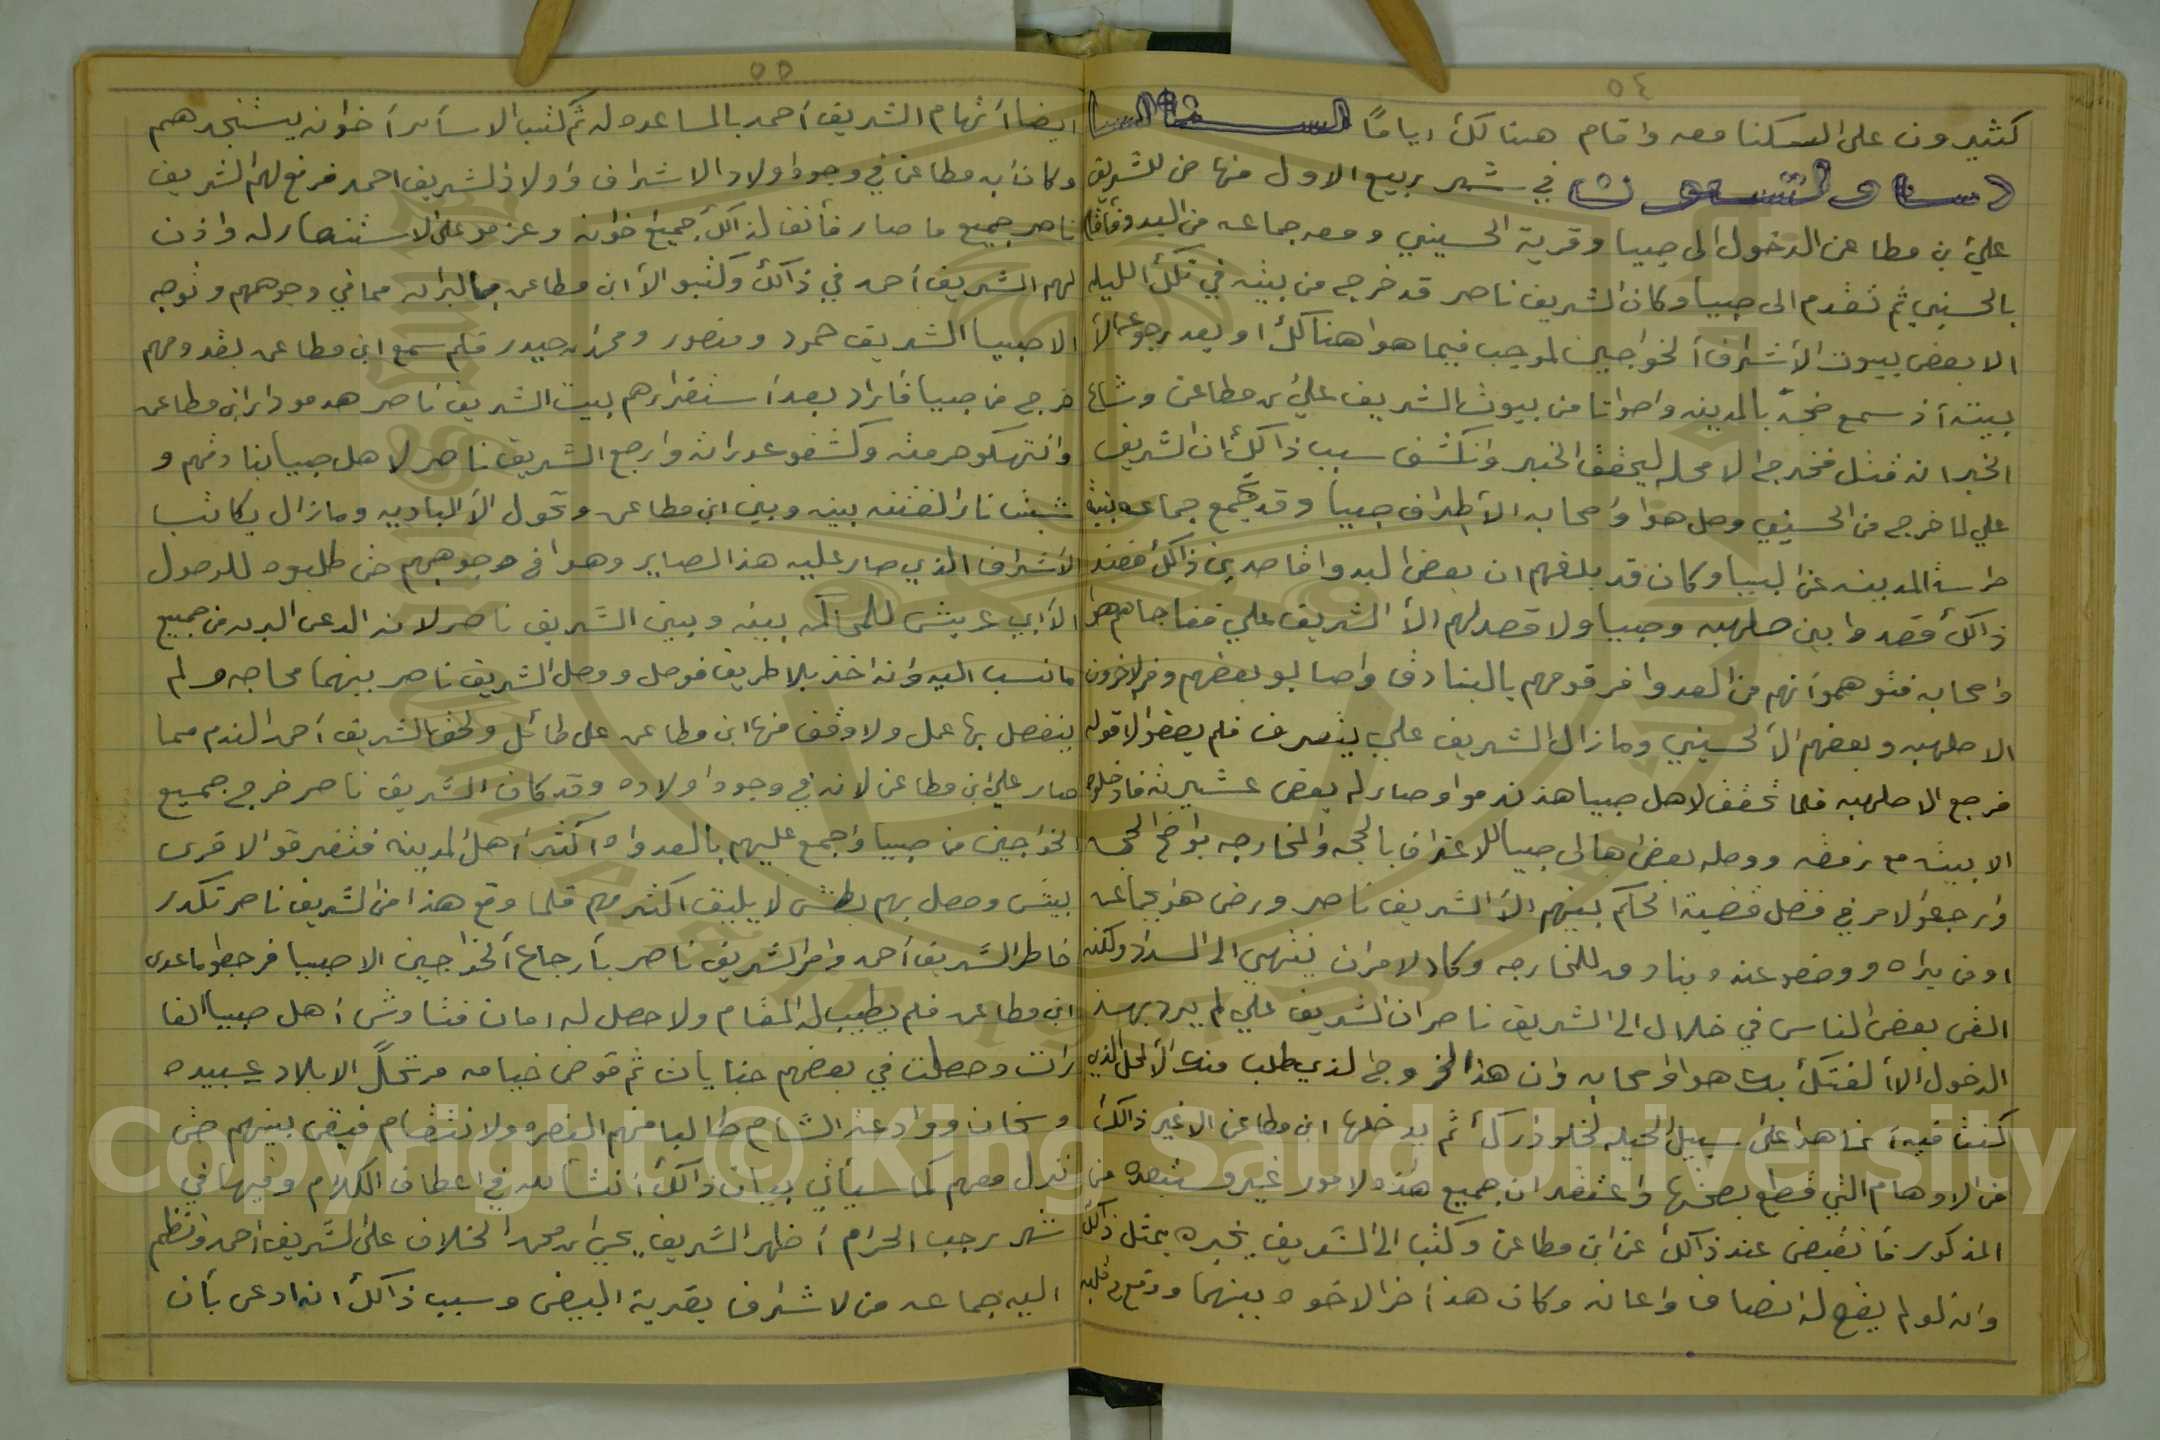 ٥٤
كثيرون على السكنا معه واقام هنالك اياماً السنة السا
دسة والتسعون في شهر ربيع الاول منها من للشريف
علي بن مطاعن الدخول الى صبيا وقرية الحسيني ومعه جماعه من البدو فأقاما
بالحسيني ثم تقدم الى صبيا وكان الشريف ناصر قد خرج من بيته في تلك الليله
الا بعض بيوت الأشراف الخواجيين لموجب فيما هوا هنالك او بعد رجوعه الأ
بيته أذ سمع ضجة بالمدينه واصواتا من بيوت الشريف علي بن مطاعن وشاع
الخبر انه قتل فخرج الا محله ليحقق الخبر وانكشف سبب ذالك ان الشريف
علي لما خرج من الحسيني وصل هوا وأصحابه الأ طراف صبيا وقد تجمع جماعه بنية
حراسة المدينه عن البيا وكان قد بلغهم ان بعض البدوا قاصدين ذالك فعند
ذالك قعدوا بين صلهبه وصبيا ولا قصد لهم الأ الشريف علي ففاجاهم هوا
واصحابه فتوهموا أنهم من العدوا فرقوهم بالبنادق واصابو بعضهم وفر الاخرون
الا صلهبه وبعضهم الأ لحسيني ومازال الشريف علي يتعرف فلم يصغو الا قوله
فرجع الا صلهبه فلما تحقق لاهل صبيا هذ ندموا وصار له بعض عشيرته فادخلوه
الا بيته مع رفقه ووصله بعض اهالي صبيا للاعتراف بالحجه والمخارجه بواضح الحجه
وارجعو الامر في فصل قضية الحكم بينهم الأ الشريف ناصر ورضى هو بجماعه
اومن يراه ووضعو عنده بنادق للمخارجه وكاد الامر ان ينتهي الى السداد ولكنه
القى بعض الناس في خلال الى الشريف ناصر ان الشريف علي لم يرد بهذ
الدخول الأ لفتك بك هوا واصحابه وان هذا الخروج الذي طلب منك الأ لحل الذي
كنت فيه أنما هوا على سبيل الحيله لخلو دارك ثم يدخلها ابن مطاعن الا غير ذالك
من الاوهام التي قطع بصحتها واعتقد ان جميع هذه لامور غير مستبعده من
المذكور فأنقبض عند ذالك عن ابن مطاعن وكتب الى الشريف يخبره بمثل ذالك
وانه لو لم يقع له انصاف واعانه وكان هذ أخر الاخوه بينهما ووقع في قلبه
٥٥
ايضا أتهام الشريف أحمد بالمساعده له ثم كتب الا سأير أخوانه يستنجدهم
وكان ابن مطاعن في وجود اولاد الاشراف واولاد الشريف احمد فرفع لهم الشريف
ناصر جميع ما صار فأنف لذالك جميع اخوانه وعزمو على الاستنصار له واذن
لهم الشريف أحمد في ذالك وكتبو الأ ابن مطاعن بالبرائه مما في وجوههم وتوجه
الا صبيا الشريف حمود ومنصور ومحمد بن حيدر فلم سمع ابن مطاعن بقدومهم
خرج من صبيا فأراد بعد أستقرارهم ببيت الشريف ناصر هدمو دار ابن مطاعن
وانتهكو حرمته وكشفو عوراته وارجع الشريف ناصر لاهل صبيا بنادقهم و
شبت نار الفتنه بينه وبين ابن مطاعن وتحول الأ البادية ومازال يكاتب
الاشراف الذي صار عليه هذ الصاير وهوا في وجوههم حتى طلبوه للوصول
الأ ابي عريش للمحاكمه بينه وبين الشريف ناصر لانه ادعى البرائه من جميع
ما نسب اليه وانه اخذ بلا طريق فوصل ووصل الشريف ناصر بينهما محاجه ولم
ينفصل بها عمل ولا وقف منها ابن مطاعن على طائل ولحق الشريف أحمد الندم مما
صار على ابن مطاعن لانه في وجود اولاده وقد كان الشريف ناصر خرج جميع
الخواجيين من صبيا واجمع عليهم بالعدواه أكثر أهل المدينه فتفرقو الا قرى
بيش وحصل بهم بطش لا يليق اكثر منهم فلما وقع هذا من الشريف ناصر تكدر
خاطر الشريف أحمد وامر الشريف ناصر بأرجاع ألخواجيين الا صبيا فرجعو ما عدى
ابن مطاعن فلم يطيب له المقام ولا حصل له امان فتاوش أهل صبيا الغا
رات وحصلت في بعضهم جنايات ثم قوض خيامه مرتحلاً الا بلاد عبيده
وسنحان ووادعة الشام طالبا منهم النصره ولانتقام فبقى بينهم حتى
نزل معهم كما سيأتي بيان ذالك أنشالله في اعطاف الكلام وفيها في
شهر رجب الحرام أظهر الشريف يحيى بن محمد الخلاف على الشريف احمد وانظم
اليه جماعه من لاشراف بقرية البيض وسبب ذالك انه ادعى بأن
Copyright © King Saud University